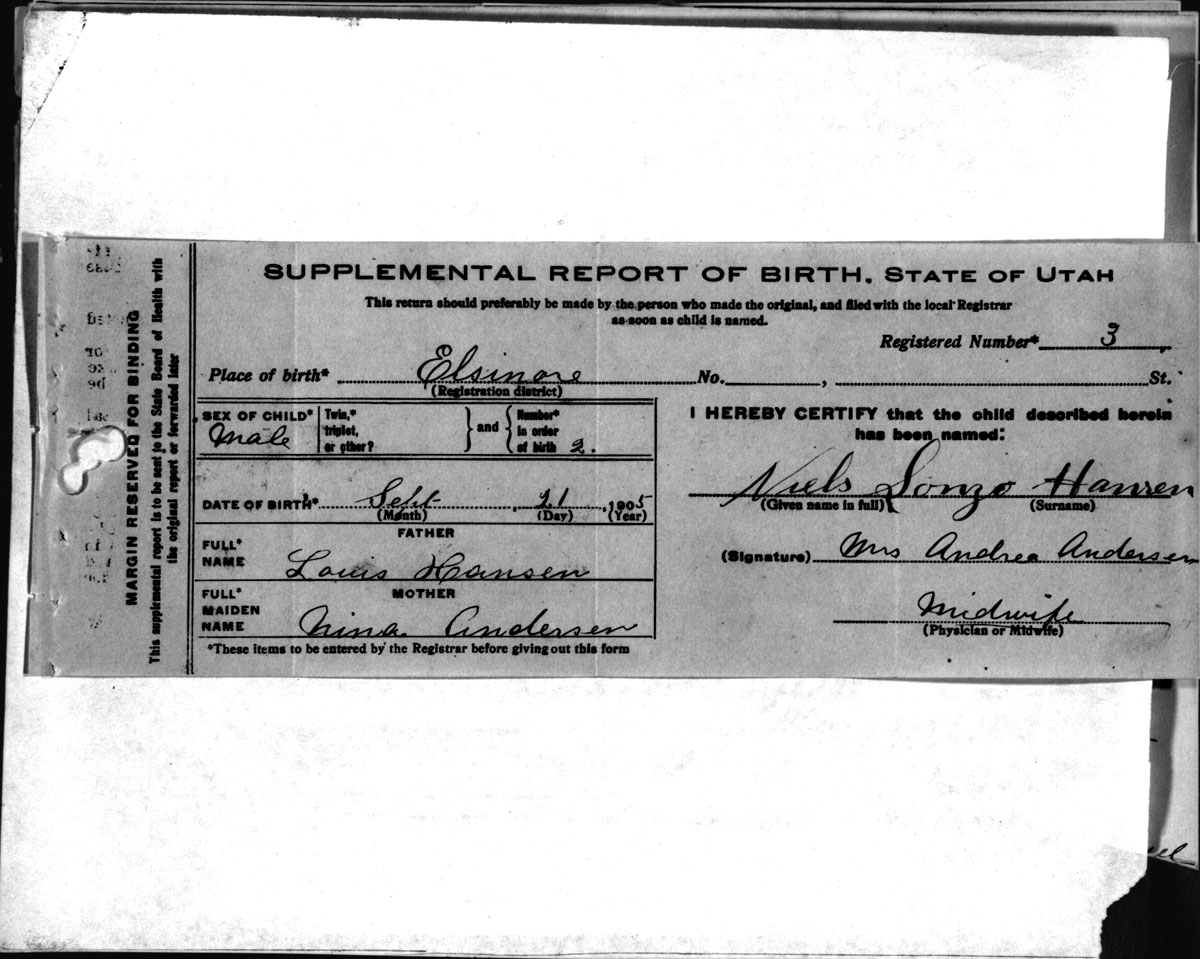 SUPPLEMENTAL REPORT OF BIRTH, STATE OF UTAH
This return should preferably be made by the person who made the original, and filed with the local Registrar
as soon as child is named.
Registered Number* 3
Place of birth* Elsinore No. , St.
(Registration district)
SEX OF CHILD* Male
Twin,* triplet, or other? } and { Number* in order of birth 2.
DATE OF BIRTH* Sept 21 1905
(Month) (Day) (Year)
FATHER
FULL* NAME Louis Hansen
MOTHER
FULL* MAIDEN NAME Nina Andersen
*These items to be entered by the Registrar before giving out this form
I HEREBY CERTIFY that the child described herein
has been named:
Niels Lonzo Hansen
(Given name in full) (Surname)
(Signature) Mrs Andrea Andersen
Midwife
(Physician or Midwife)
MARGIN RESERVED FOR BINDING
This supplemental report is to be sent to the State Board of Health with
the original report or forwarded later